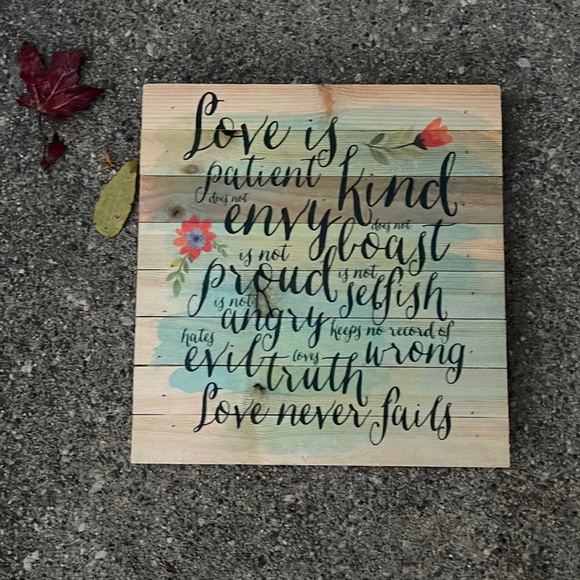 Love is
patient kind
does not envy does not boast
is not proud is not selfish
is not angry keeps no record of
hates evil loves truth wrong
Love never fails